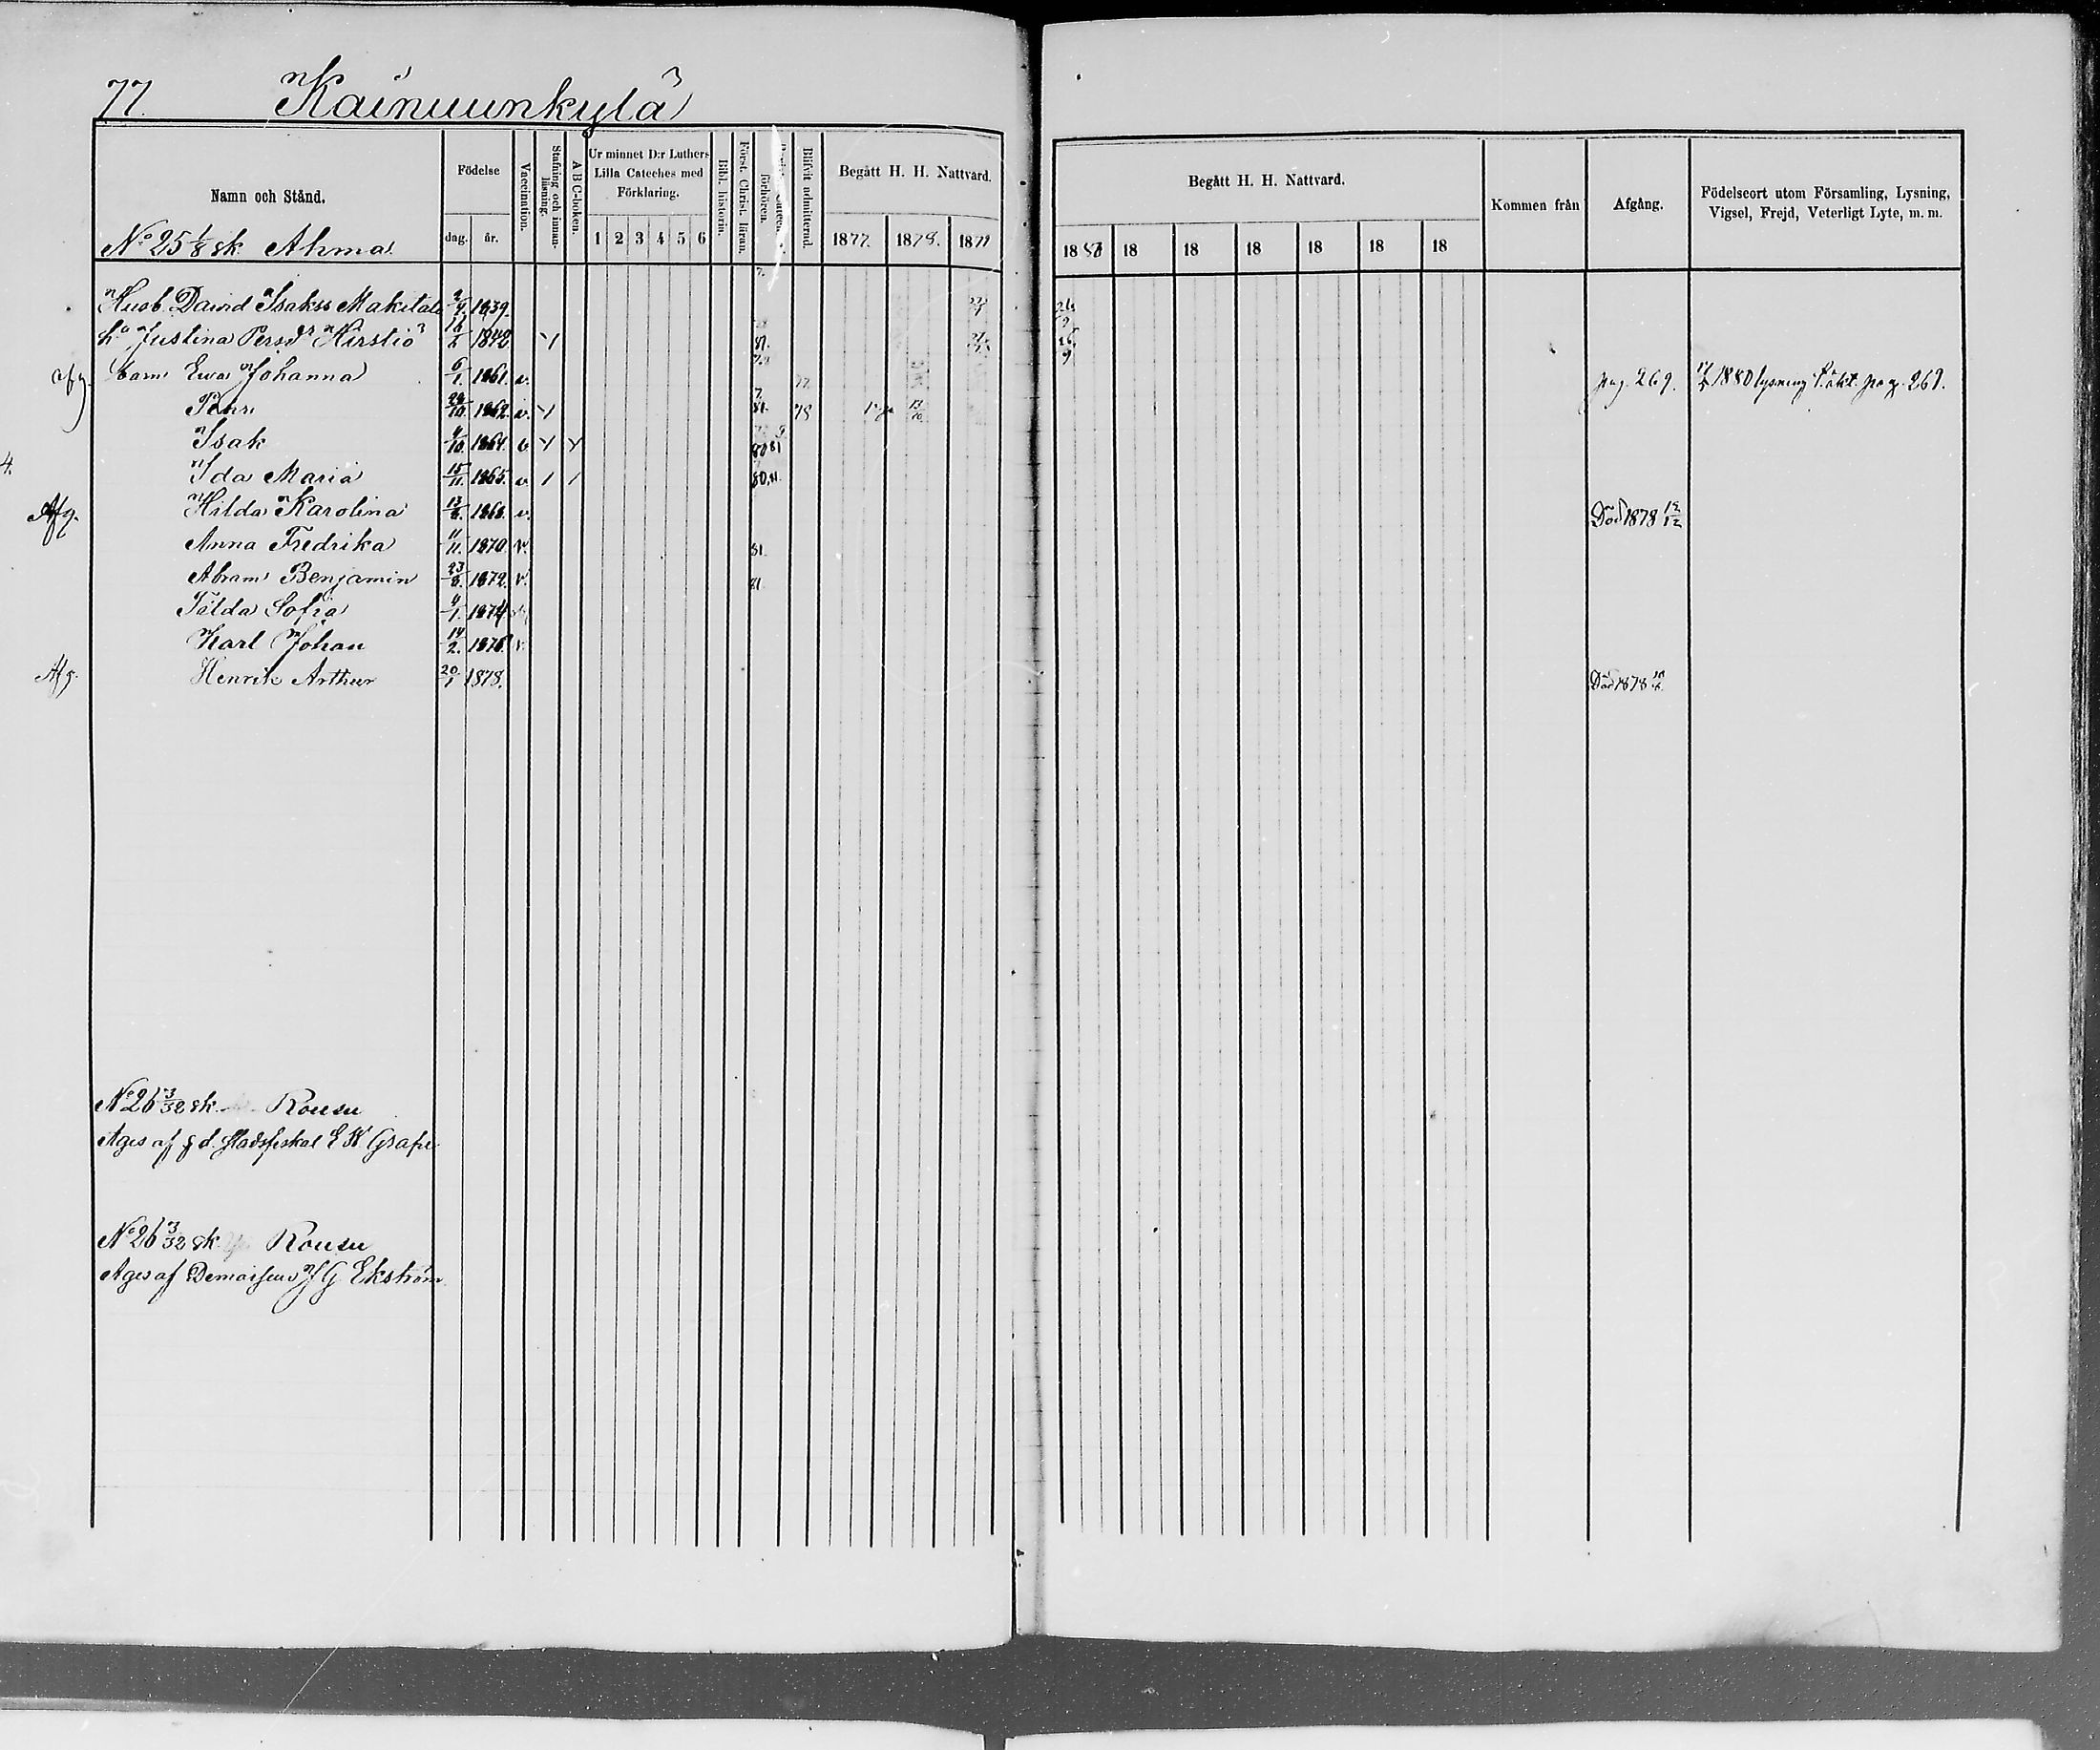 77. Kainuunkylä
Namn och Stånd.
Födelse
dag. år.
Vaccination.
Stafning och innan-läsning.
A B C-boken.
Ur minnet D:r Luthers Lilla Cateches med Förklaring.
1 2 3 4 5 6
Bibl. historin.
Först. Christ. läran.
förhören.
Blifvit admitterad.
Begått H. H. Nattvard.
1877. 1878. 1879
Begått H. H. Nattvard.
1880 18 18 18 18 18 18
Kommen från
Afgång.
Födelseort utom Församling, Lysning, Vigsel, Frejd, Veterligt Lyte, m. m.
No 25 1/8 sk. Ahma
Husb. David Isakss Mäkitalo 1839.
h. Justina Persdr Hirsliö 1842 81.
afg. barn Ewa Johanna 6/1. 1861. v. pag. 269. 1880 lysning pag. 269.
Pehr 1862. v. 81. 78
Isak 4/10. 1864. v. 80 81
4. Ida Maria 15/11. 1865. v. 80, 81.
Afg. Hilda Karolina 13/8. 1868. v. Död 1878 12/12
Anna Fredrika 11/11. 1870. v. 81.
Abram Benjamin 23/8. 1872. v. 81
Tilda Sofia 4/1. 1874
Karl Johan 14/2. 1876 v.
Afg. Henrik Arthur 20/1 1878. Död 1878
No 26 3/32 sk. Rousu
Ages af f d. stadsfiskal E W Grape
No 26 3/32 sk Rousu
Ages af Demoisen J G Ekström.